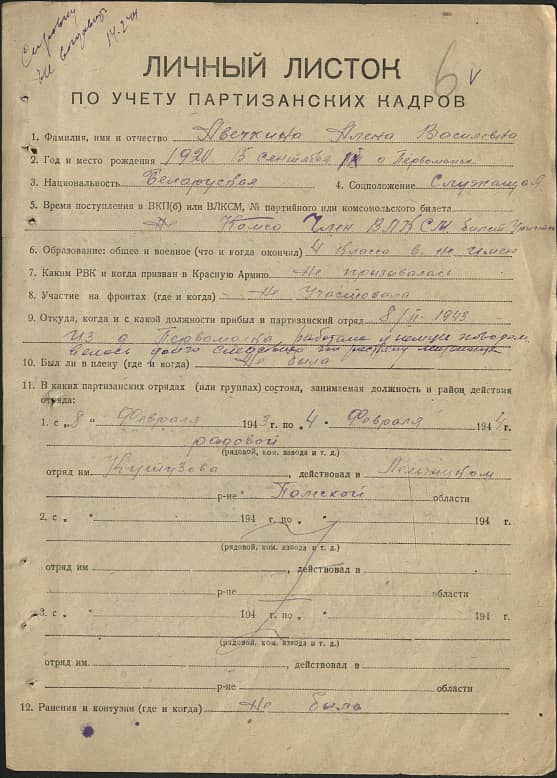 14-2-44
6 v
ЛИЧНЫЙ ЛИСТОК
ПО УЧЕТУ ПАРТИЗАНСКИХ КАДРОВ
1. Фамилия, имя и отчество Авечкина Алена Василевна
2. Год и место рождения 1920 15 сентября д Первомайск
3. Национальность Беларуская 4. Соцположение Служащая
5. Время поступления в ВКП(б) или ВЛКСМ, № партийного или комсомольского билета
Член ВЛКСМ билет
6. Образование: общее и военное (что и когда окончил) 4 класа в. н имеи
7. Каким РВК и когда призван в Красную Армию Не призивалась
8. Участие на фронтах (где и когда) Не Участвовала
9. Откуда, когда и с какой должности прибыл в партизанский отряд 8/II-1943
Из д Первомайска, работала
10. Был ли в плену (где и когда) Не была
11. В каких партизанских отрядах (или группах) состоял, занимаемая должность и район действия
отряда:
1. с „8 " Февраля 1943 г. по „4 " Февраля 1944 г.
радовой
(рядовой, ком. взвода и т. д.)
отряд им. Кутузова , действовал в
р-не области
2. с „ " 194 г. по „ " 194 г.
(рядовой, ком. взвода и т. д.)
отряд им. , действовал в
р-не области
3. с „ " 194 г. по „ " 194 г.
(рядовой, ком. взвода и т. д.)
отряд им. , действовал в
р-не области
12. Ранения и контузии (где и когда) Не была